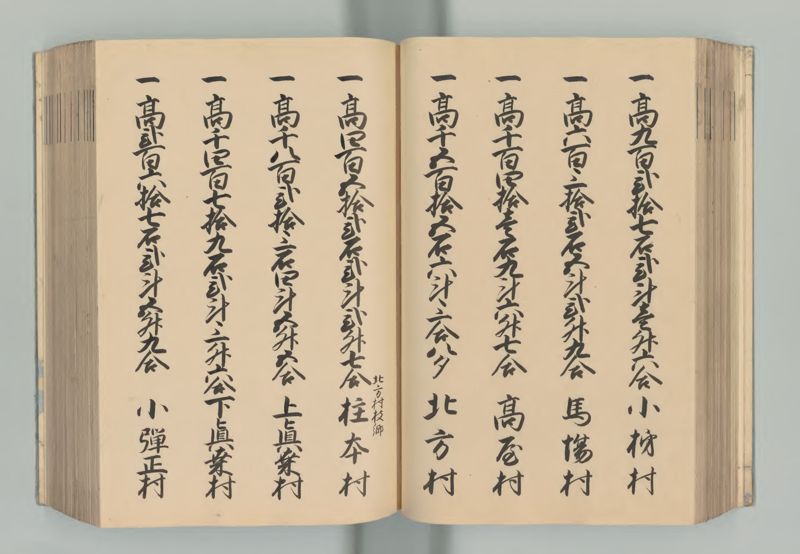 一高九百弐拾七石弐斗壱升六合小柿村
一高六百三拾弐石五斗弐升九合馬場村
一高千百四拾壱石九斗六升七合高屋村
一高千五百拾五石六斗三合八夕北方村
一高四百五拾弐石弐斗弐升七合柱本村
北方村枝郷
一高千八百弐拾三石四斗五升五合上眞桑村
一高千四百七拾九石弐斗三升六合下眞桑村
一高弐百六拾七石弐斗五升九合小彈正村